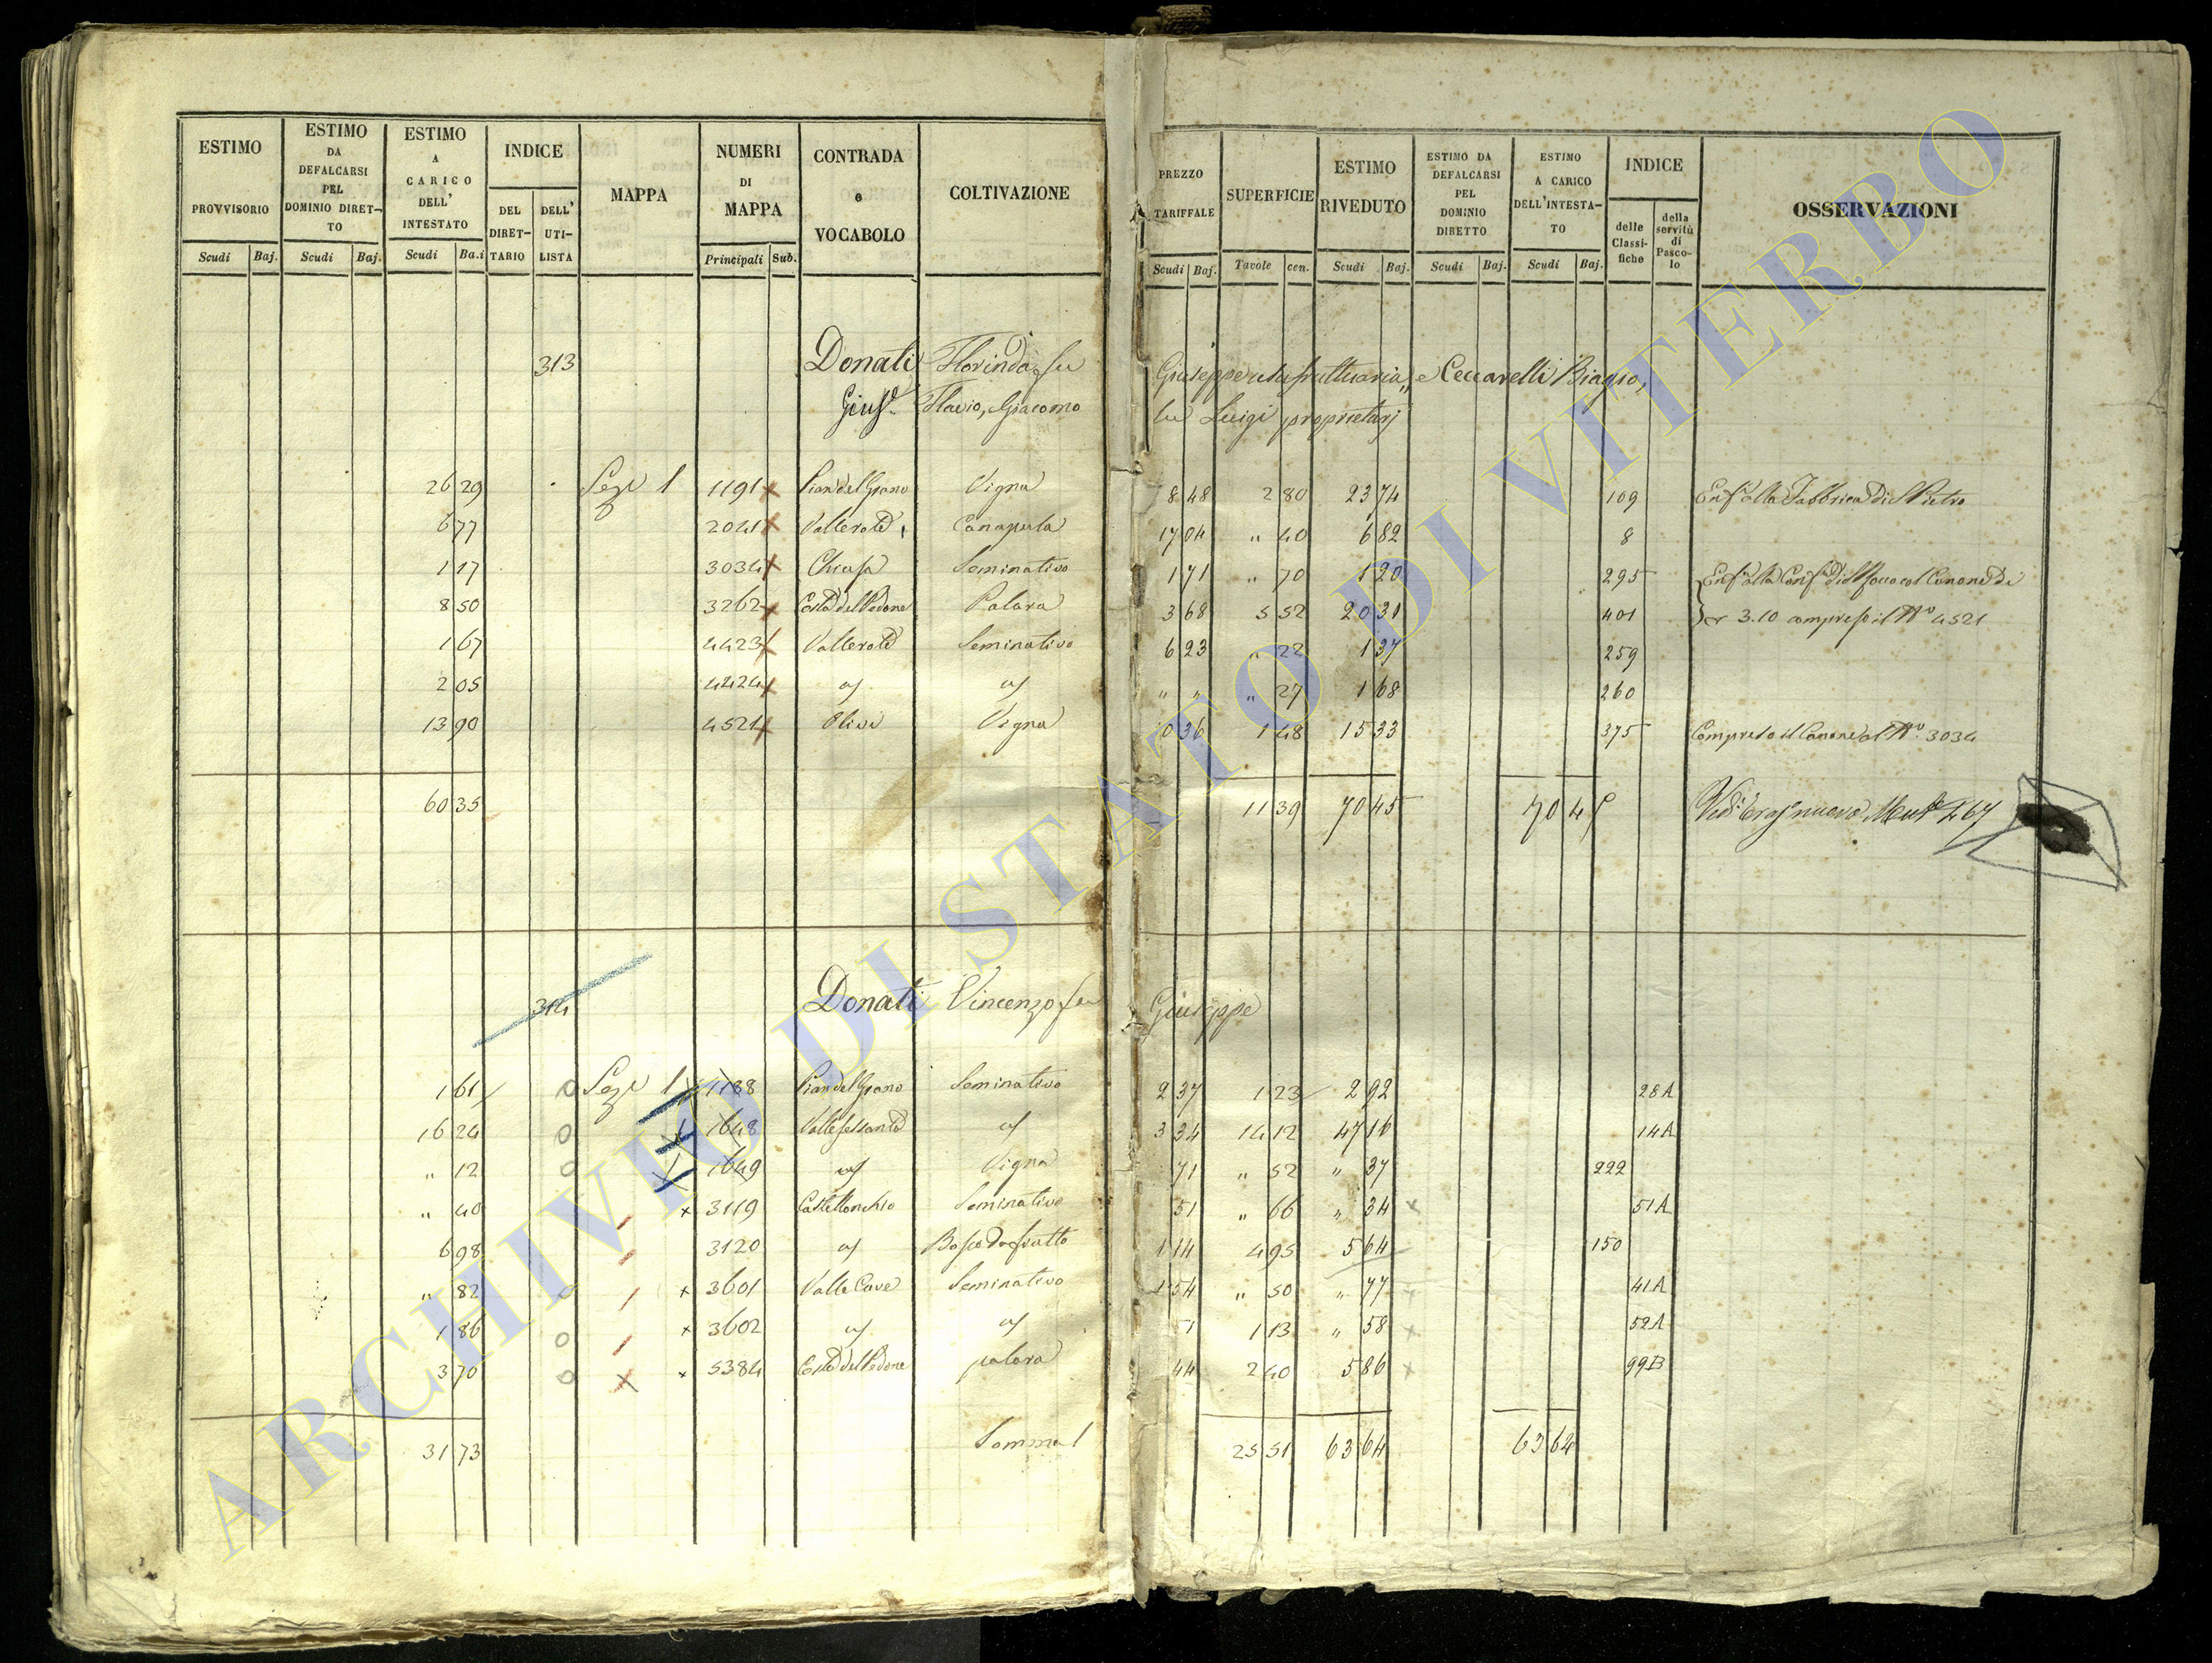 ESTIMO PROVVISORIO Scudi Baj.
ESTIMO DA DEFALCARSI PEL DOMINIO DIRET-TO Scudi Baj.
ESTIMO A CARICO DELL' INTESTATO Scudi Ba.i
INDICE DEL DIRET-TARIO DELL' UTI-LISTA
MAPPA
NUMERI DI MAPPA Principali Sub.
CONTRADA e VOCABOLO
COLTIVAZIONE
PREZZO TARIFFALE Scudi Baj.
SUPERFICIE Tavole cen.
ESTIMO RIVEDUTO Scudi Baj.
ESTIMO DA DEFALCARSI PEL DOMINIO DIRETTO Scudi Baj.
ESTIMO A CARICO DELL'INTESTA-TO Scudi Baj.
INDICE delle Classi-fiche della servitù di Pasco-lo
OSSERVAZIONI
313 Donati Florinda fu Giuseppe usufruttuaria, e Ceccarelli Biagio,
Flavio, Giacomo fu Luigi proprietarj
26 29 Sezе 1 1191 Pian del Grano Vigna 8 48 2 80 23 74 109 Enf. alla Fabbrica di S Pietro
6 77 2041 Vallerote Canapula 17 04 " 40 6 82 8
1 17 3034 Chiusa Seminativo 1 71 " 70 1 20 295
8 50 3262 Costa del Pedone Palara 3 68 5 52 20 31 401 3.10 compreso il No 4521
1 67 4423 Vallerote Seminativo 6 23 " 22 1 37 259
2 05 4424 " " " 27 1 68 260
13 90 4521 Olivi Vigna 0 36 1 48 15 33 375 Compreso il Canone al No. 3034
60 35 11 39 70 45 70 45 nuovo 467
314 Donati Vincenzo fu Giuseppe
1 61 Seze 1 1188 Pian del Grano Seminativo 2 37 1 23 2 92 28A
16 24 1648 3 34 14 12 47 16 14A
" 12 1649 Vigna 71 " 52 " 37 222
" 40 3119 Seminativo 51 " 66 " 34 51A
6 98 3120 1 14 4 95 5 64 150
" 82 3601 Valle Cave Seminativo 1 54 " 50 " 77 41A
1 86 3602 51 1 13 " 58 52A
3 70 5384 Costa del Pedone palara 44 2 40 5 86 99B
31 73 Somma 25 51 63 64 63 64
ARCHIVIO DI STATO DI VITERBO